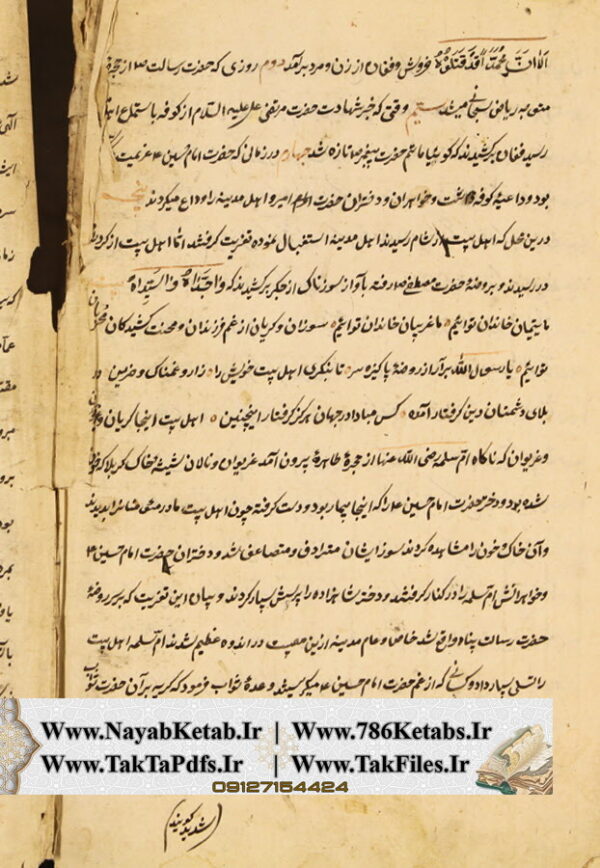 الا ان محمدا قد قتل خروش و فغان از زن و مرد برآمد دوم روزی که حضرت رسالت ص از حجره
متوجه ریاض میشد سیم وقتی که خبر شهادت حضرت مرتضی علی علیه السلام از کوفه باستماع
رسید فغان برکشیدند که گوئیا ماتم حضرت پیغمبر ص تازه شد چهارم در زمان که حضرت امام حسین ع عزیمت
بود و داعیهٔ کوفه داشت و خواهران و دختران حضرت امیر و اهل مدینه را وداع میکردند
درین محل که اهل بیت از شام رسیدند اهل مدینه استقبال نموده تعزیت گرفتند اما اهل بیت از کرد
در رسیدند و بروضهٔ حضرت مصطفی ص رفته بآواز سوزناک از جگر برکشیدند که واجداه
ما یتیمان خاندان توایم ما غریبان خاندان توایم سوزان و گریان از غم فرزندان و محنت کشیدکان
توایم یا رسول الله برآر از روضهٔ پاکیزه سر تا بنکری اهل بیت خویش را زار و غمناک و حزین در
بلای دشمنان دین گرفتار آمده کس مبادا در جهان هرکز گرفتار اینچنین اهل بیت اینجا گریان
و غریوان که ناکاه ام سلمه رضی الله عنها از حجرهٔ طاهره بیرون آمد غریوان و نالان شیشهٔ خاک کربلا که
شده بود و دختر حضرت امام حسین ع را که اینجا بیمار بود دست گرفته چون اهل بیت مادر
و آن خاک و خون را مشاهده کردند سوز ایشان مترادف و متضاعف شد و دختران حضرت امام حسین ع
و خواهرانش ام سلمه را در کنار گرفتند و دختر شاهزاده را پرسش بسیار کردند و بیان این تعزیت که بر سر روضهٔ
حضرت رسالت پناه واقع شد خاص و عام مدینه ازین مصیبت در اندوه عظیم شدند ام سلمه اهل بیت
را تسلی بسیار داد و کسانی که از غم حضرت امام حسین ع میکریستند وعدهٔ ثواب فرمود که گریه بر آن حضرت
www.NayabKetab.Ir | Www.786Ketabs.Ir
Www.TakTaPdfs.Ir | Www.TakFiles.Ir
09127154424